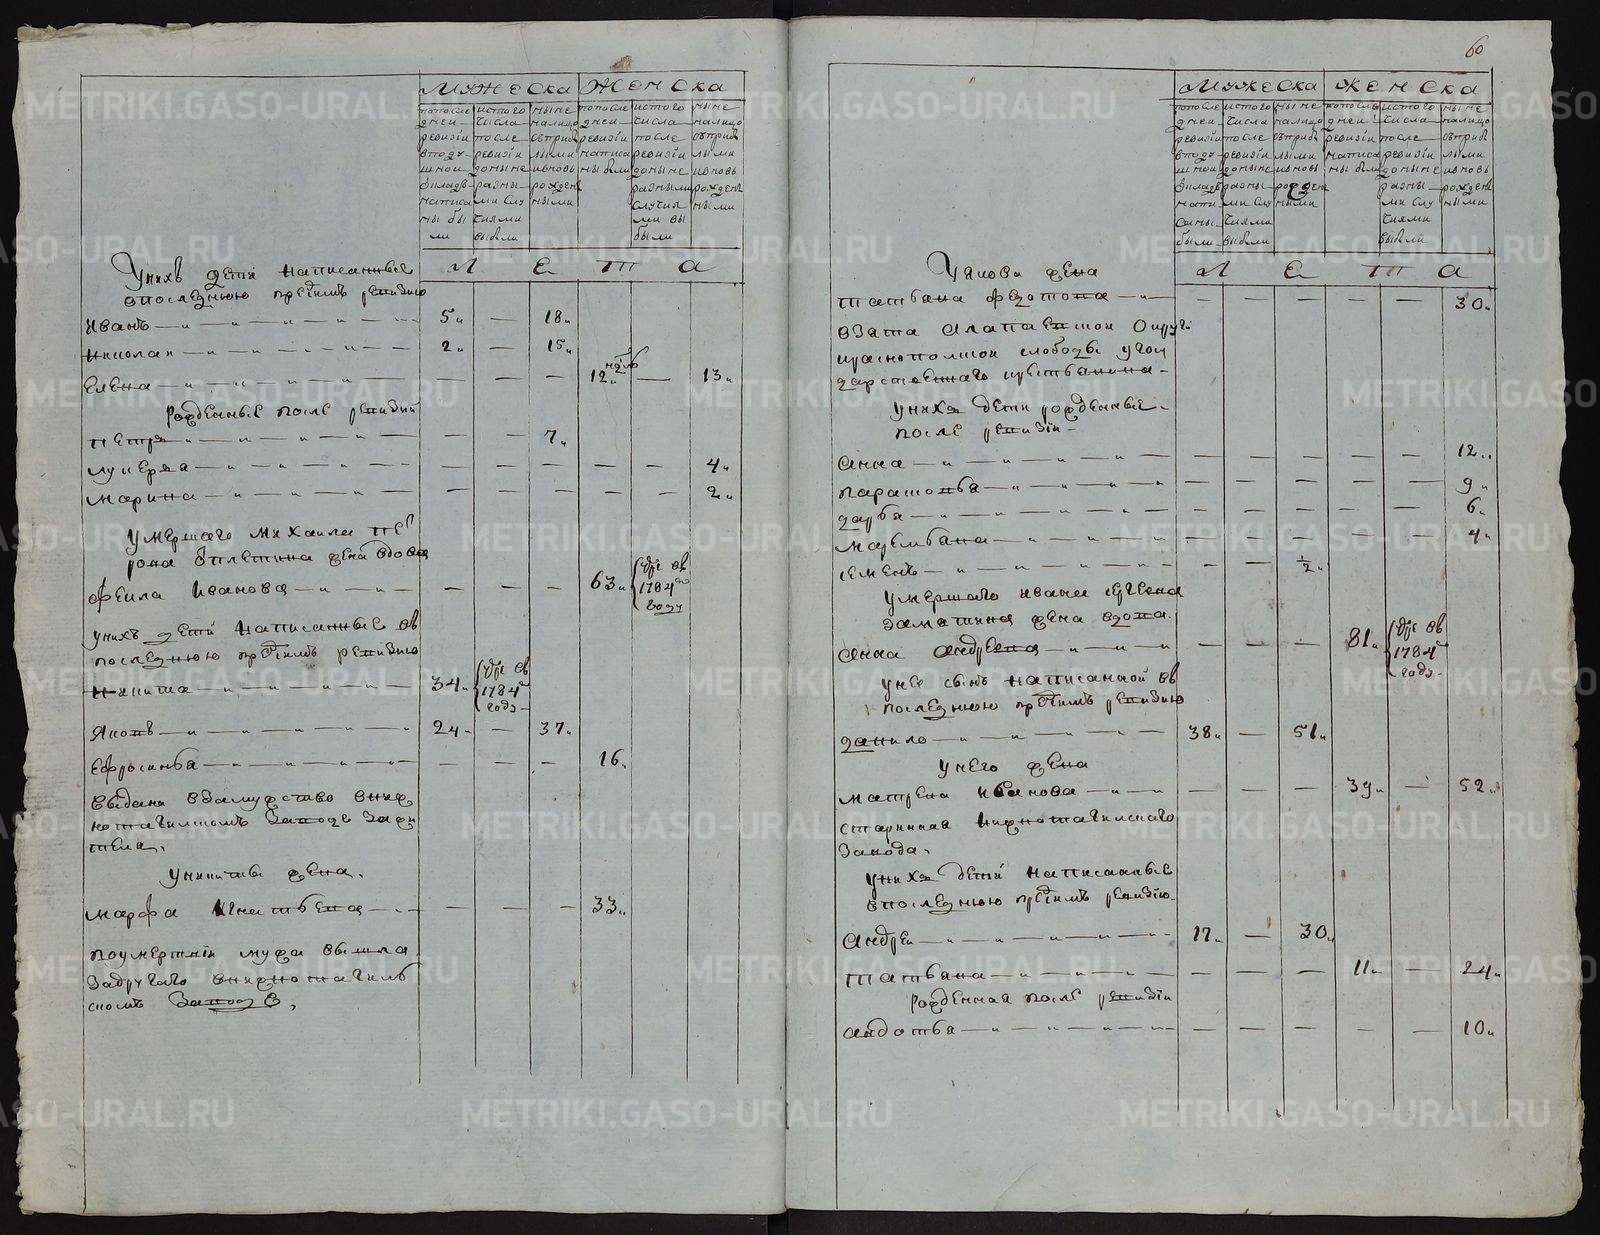 Мужеска Женска
попослѣ дней ревизіи вподушной окладъ написаны были
истого числа после ревизіи доныне разными случиями выбыли
ныне налицо съприбылыми ивновь рожденными
попосле дней ревизіи написаны были
истого числа после ревизіи доныне разными случиями выбыли
ныне налицо съприбылыми ивновь рожденными
Л Е Т А
Унихъ дети написанные
впоследнюю предъимъ ревизию
Иванъ 5 — 18
Николаи 2 — 15
Елена — — — 12 — 13
Рожденные после ревизии
Петръ — — 7
Лукерья — — — — — 4
Марина — — — — — 2
Умершаго Михаила
жена вдова
Фекла Иванова — — — 63 умре въ
1784
году
Унихъ дети написанные въ
последнюю предъимъ ревизию
Никита 34 умре въ
1784
году
Яковъ 24 — 37
Ефросинья — — — 16
Выдана взамужство вниж
нотагилскомъ заводе зажи
теля
Уникиты жена
Марфа Игнатьева — — — 33
Поумертвіи мужа вышла
задругаго внижнотагиль
скомъ заводе
60
Мужеска Женска
попосле дней ревизіи вподушной окладъ написаны были
истого числа после ревизіи доныне разными случиями выбыли
ныне налицо съприбылыми ивновь рожденными
попосле дней ревизіи написаны были
истого числа после ревизіи доныне разными случиями выбыли
ныне налицо съприбылыми ивновь рожденными
Л Е Т А
Уякова жена
Татьяна Федотова — — — — — 30
взята Алапаевской Округи
краснополской слободы угосу
дарственнаго крестьянина
Унихъ дети рожденные
после ревизіи
Анна — — — — — 12
Парасковья — — — — — 9
Дарья — — — — — 6
Маремьяна — — — — — 4
Семенъ — — 1/2
Умершаго Ивана Сергеева
Замятина жена вдова
Анна Андреева — — — 81 умре въ
1784
году
Унее сынъ написанной въ
последнюю предъимъ ревизию
Данило 38 — 51
Унего жена
Матрена Иванова — — — 39 — 52
старинная нижнотагилскаго
завода
Унихъ дети написанные
впоследнюю предъимъ ревизію
Андреи 17 — 30
Татьяна — — — 11 — 24
Рожденная после ревизіи
Авдотья — — — — — 10
METRIKI.GASO-URAL.RU